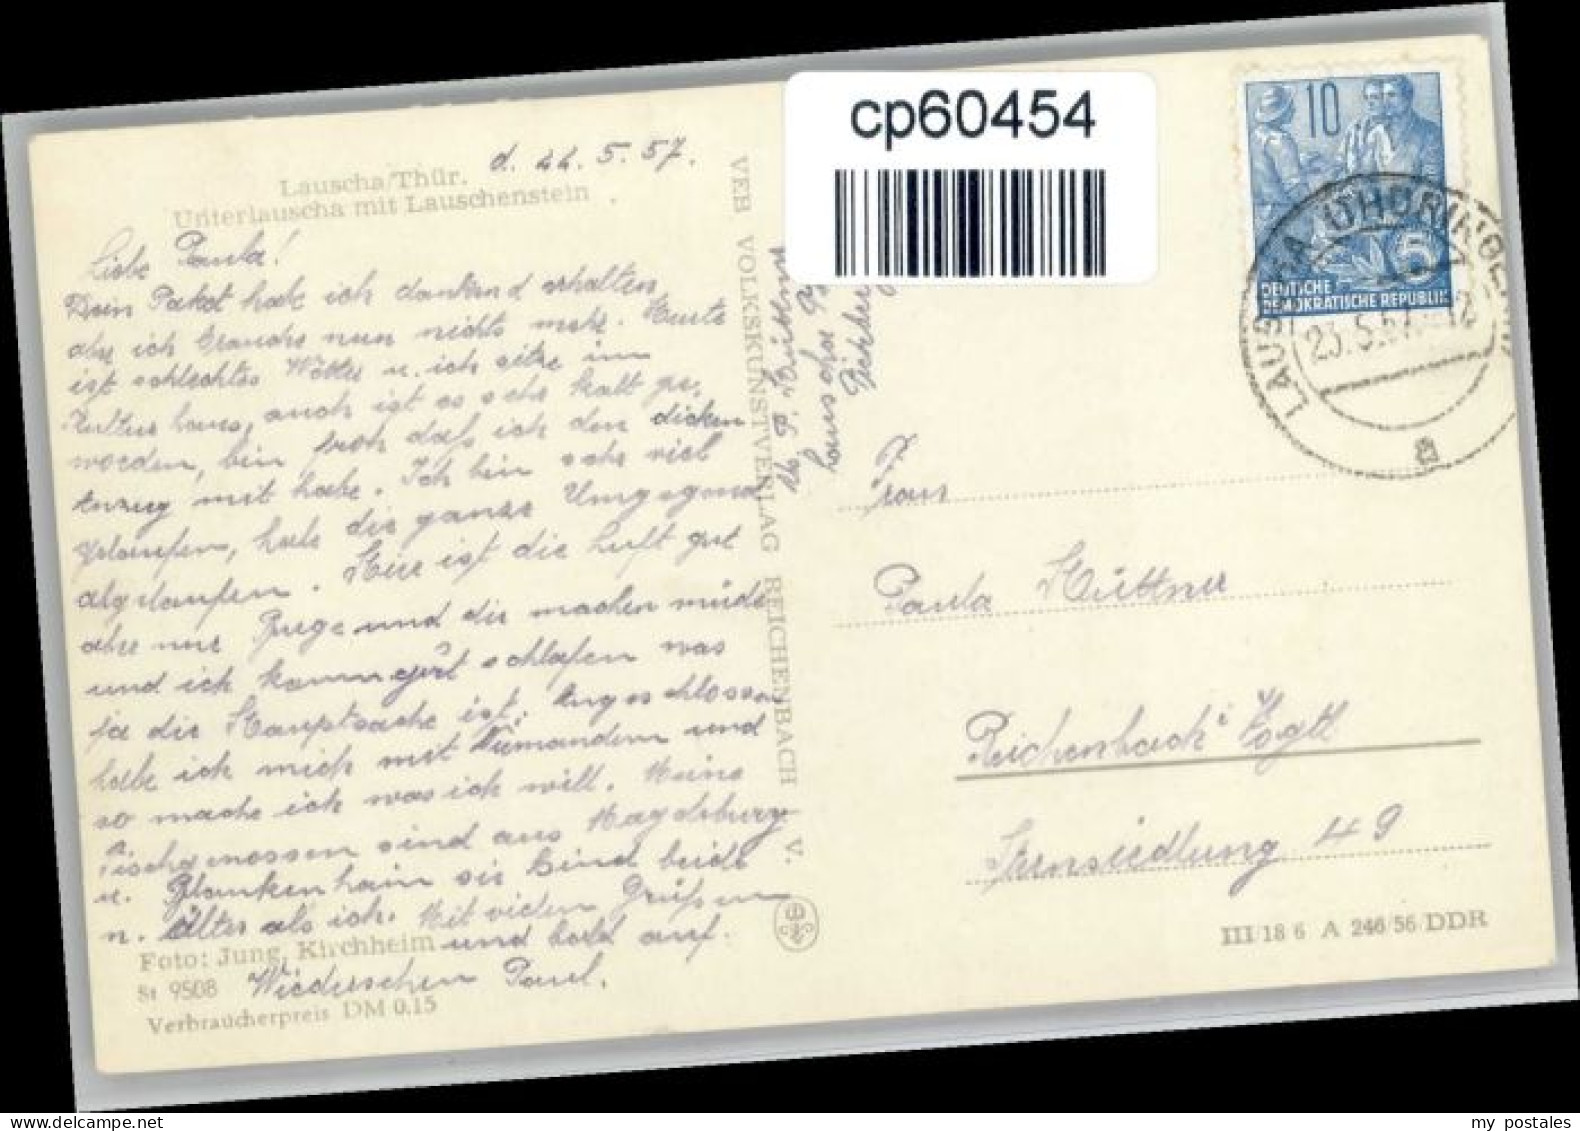 cp60454
d. 22. 5. 57.
Lauscha/Thür.
Unterlauscha mit Lauschenstein
Liebe Paula!
Dein Paket habe ich dankend erhalten
aber ich brauche nun nichts mehr. Heute
ist schlechtes Wetter u. ich sitze im
Kulturhaus, auch ist es sehr kalt ge-
worden, bin froh daß ich den dicken
Anzug mit habe. Ich bin sehr viel
gelaufen, habe die ganze Umgegend
abgelaufen. Hier ist die Luft gut
aber nur Berge und die machen müde
und ich kann gut schlafen was
ja die Hauptsache ist. Angeschlossen
habe ich mich mit Niemandem und
so mache ich was ich will. Meine
Tischgenossen sind aus Magdeburg
u. Blankenhain sie sind beide
älter als ich. Mit vielen Grüßen
und bald auf
Wiedersehen Paul.
Foto: Jung, Kirchheim
St 9508
Verbraucherpreis DM 0.15
VEB VOLKSKUNSTVERLAG REICHENBACH i. V.
Abs. P. Hüttner
Lauscha
10
5
DEUTSCHE
DEMOKRATISCHE REPUBLIK
LAUSCHA (THÜRINGEN)
23.5.57
a
Frau
Paula Hüttner
Reichenbach i Vogtl
Sternsiedlung 49
III/18 6 A 246/56/DDR
my postales